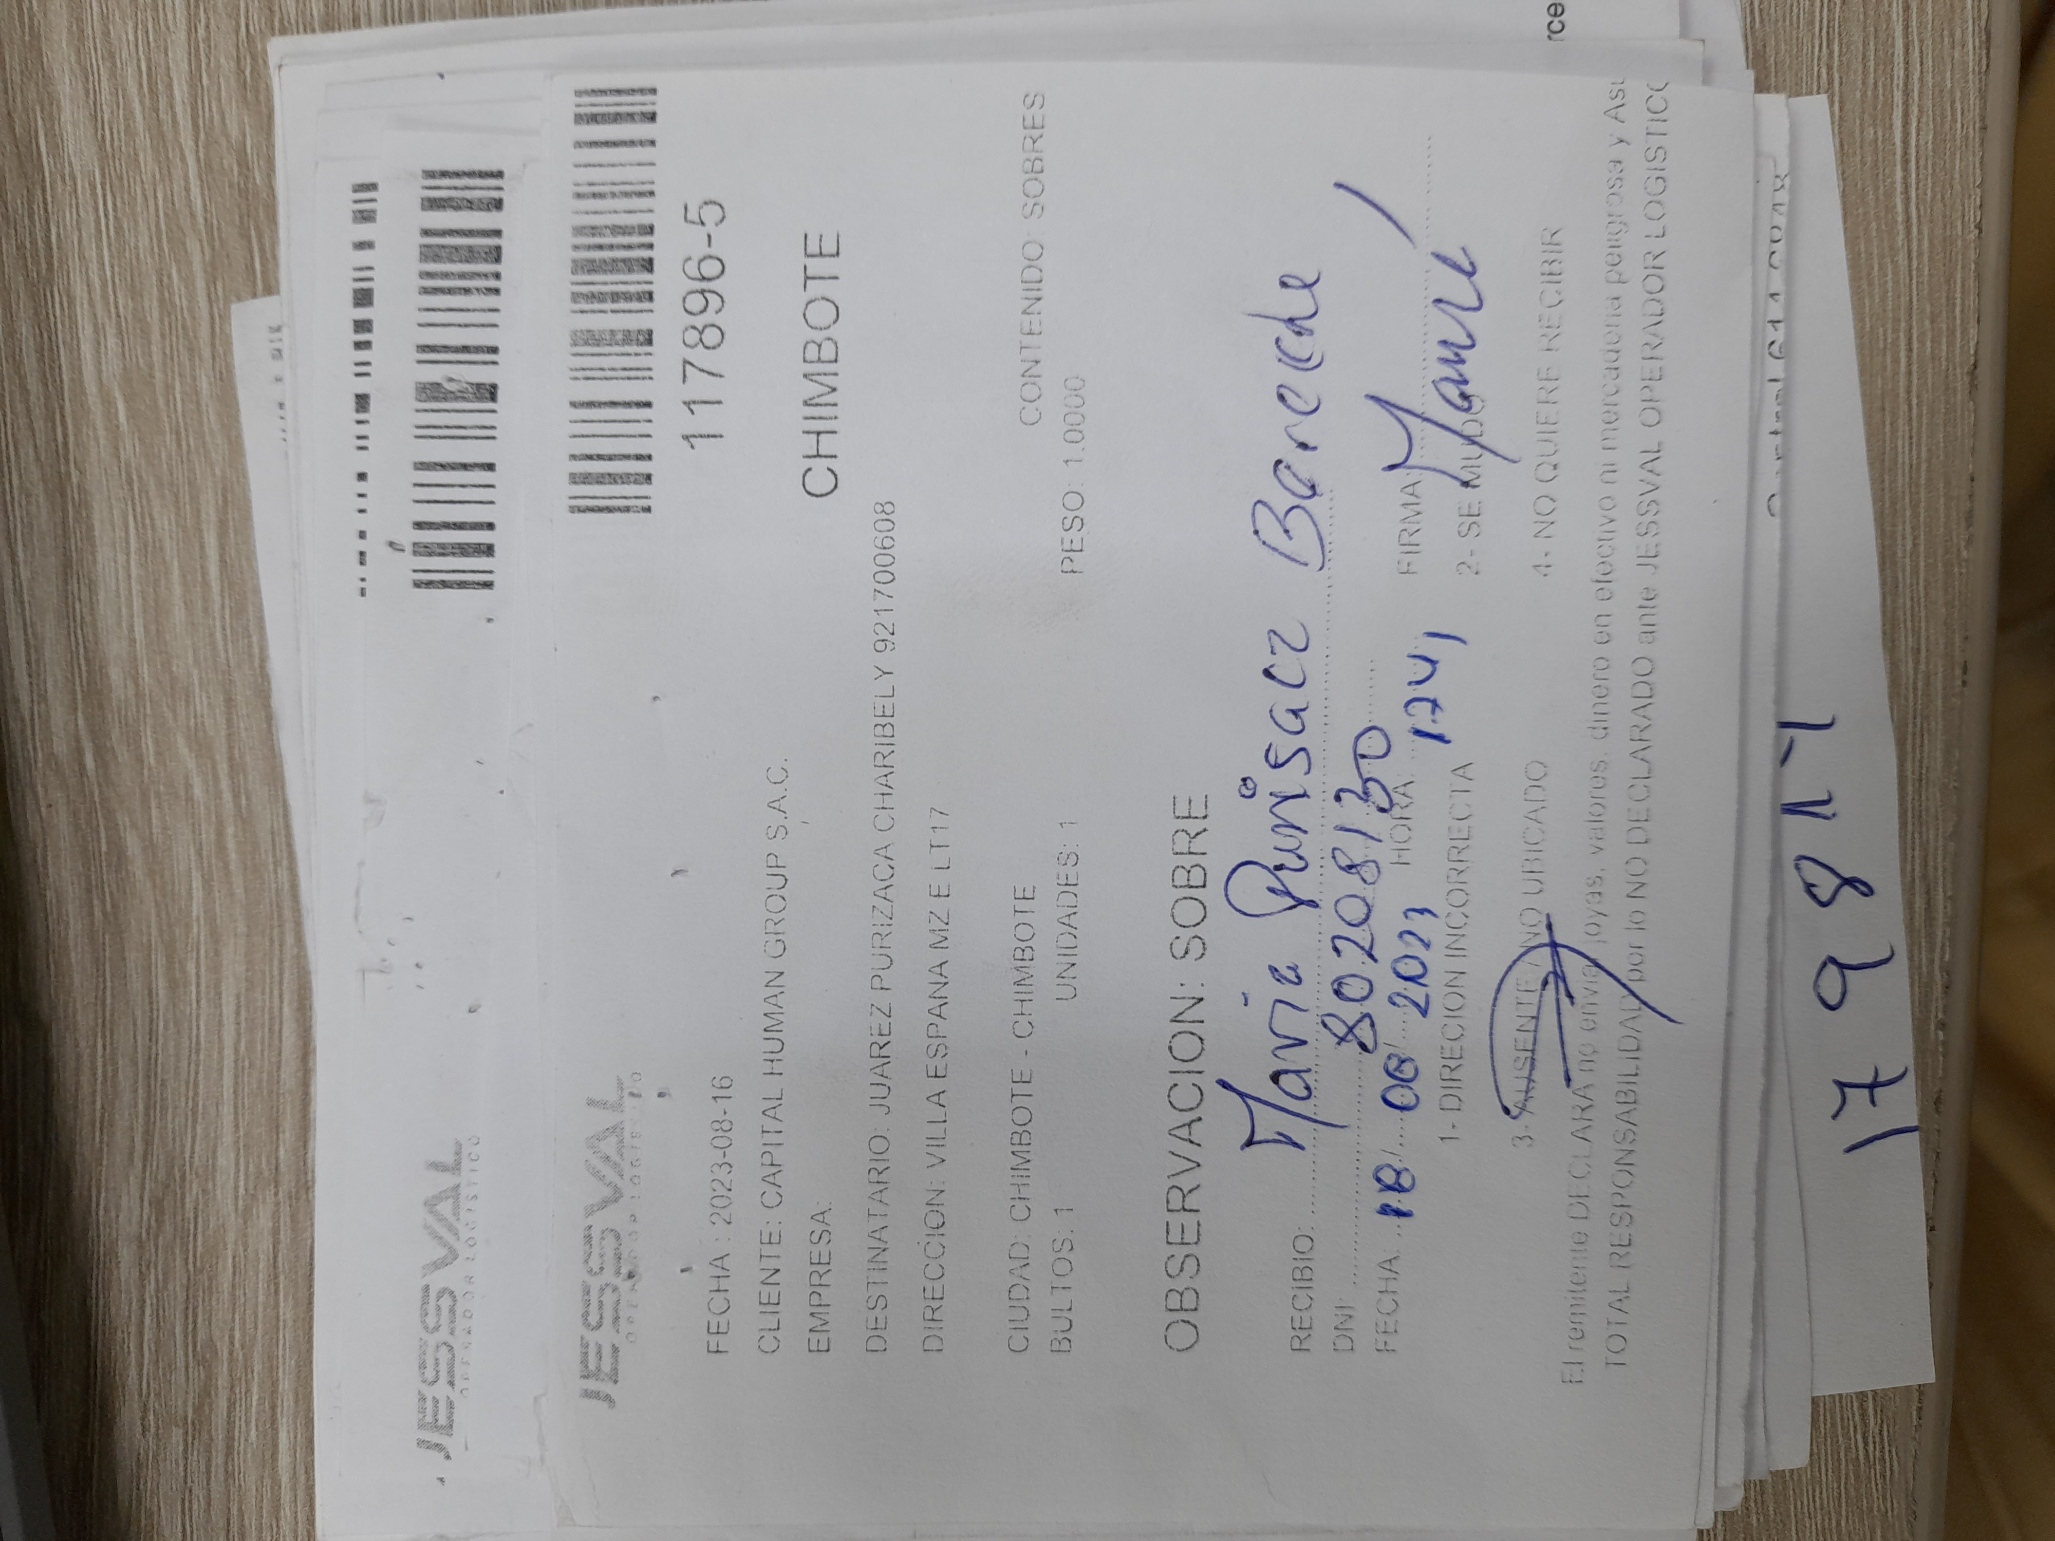 JESSVAL
OPERADOR LOGISTICO
JESSVAL
OPERADOR LOGISTICO
117896-5
FECHA : 2023-08-16
CLIENTE: CAPITAL HUMAN GROUP S.A.C.
EMPRESA:
CHIMBOTE
DESTINATARIO: JUAREZ PURIZACA CHARIBELY 921700608
DIRECCION: VILLA ESPANA MZ E LT17
CIUDAD: CHIMBOTE - CHIMBOTE
CONTENIDO: SOBRES
BULTOS: 1 UNIDADES: 1 PESO: 1.0000
OBSERVACION: SOBRE
RECIBIO: Maria Purisaca Bereche
DNI: 80208130
FECHA: 18/ 08/ 2023 HORA:
FIRMA:
1- DIRECION INCORRECTA 2- SE MUDO
3- AUSENTE / NO UBICADO 4- NO QUIERE RECIBIR
El remitente DECLARA no enviar joyas, valores, dinero en efectivo ni mercaderia peligrosa y
TOTAL RESPONSABILIDAD por lo NO DECLARADO ante JESSVAL OPERADOR LOGISTICO
17 9 8